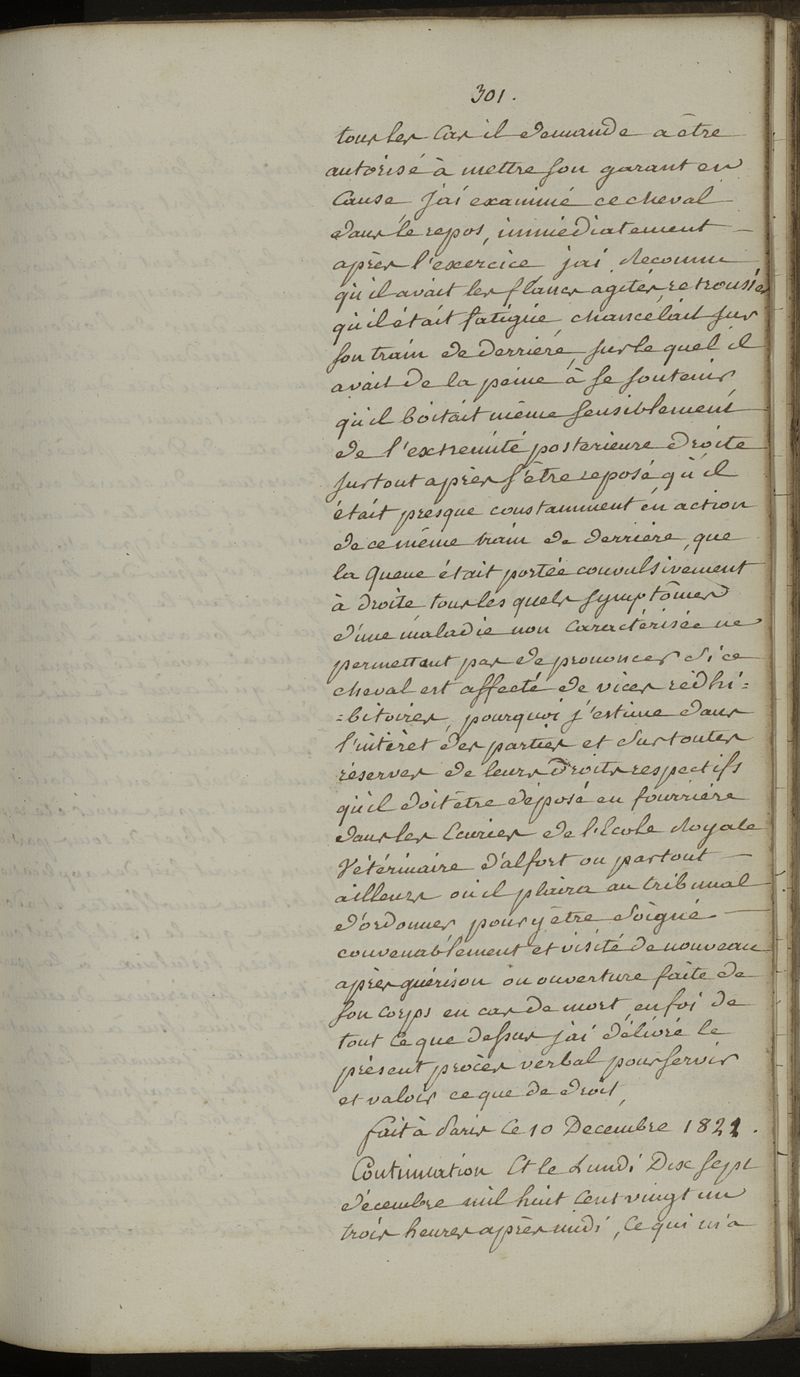 301.
tous les cas il demande a être
autorisé à mettre son garant en
Cause, j'ai examiné ce cheval
dans le repos, immédiatement —
après l'exercice j'ai reconnu
qu'il avait les flancs agités, retroussés
qu'il était fatigué, chancelait sur
son train de derriere, sur le quel il
avait de la peine à se soutenir,
qu'il boitait même sensiblement
de l'extremité posterieure droite
surtout après s'être reposé qu'il
était presque constamment en action
de ce même train de derriere, que
la Queue était portée convulsivement
à droite tous les quels symptômes
d'une maladie non caractérisée ne
permettant pas de prononcer si ce
cheval est affecté de vices rédhi=
=bitoires, pourquoi j'estime dans
l'intéret des parties et sur toutes
réserves de leurs Droits respectifs
qu'il doit être déposé en fourriere
dans les Ecuries de l'Ecole Royale
Vétérinaire d'alfort ou partout —
ailleurs où il plaira au tribunal
d'ordonner pour y être soigné —
convenablement et visité de nouveau
après guérison ou ouverture faite de
son corps en cas de mort, en foi de
tout ce que dessus j'ai délivré le
présent procès verbal pour servir
et valoir ce que de droit,
fait à Paris ce 10 Decembre 1821.
Continuation Et le Lundi Dix sept
décembre mil huit cent vingt un
trois heures après midi, ce qui m'a